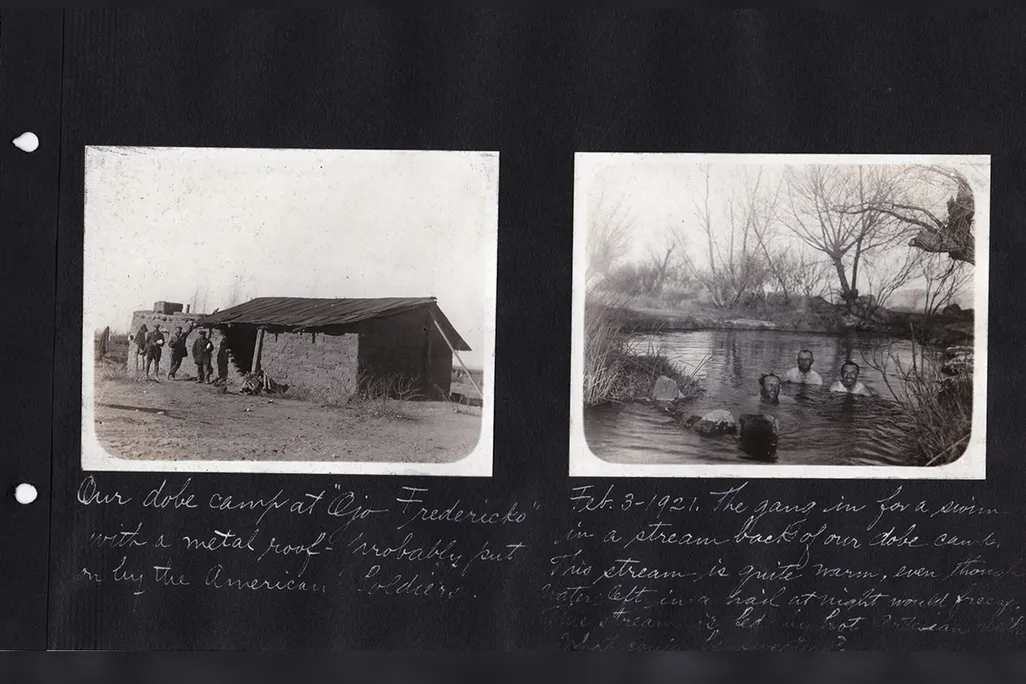 Our dobe camp at "Ojo Fredericko"
with a metal roof - probably put
on by the American Soldiers.
Feb. 3-1921. The gang in for a swim
in a stream back of our dobe camp.
This stream is quite warm, even though
water left in a pail at night would freeze.
The stream is fed by hot artesian
What could be sweeter?